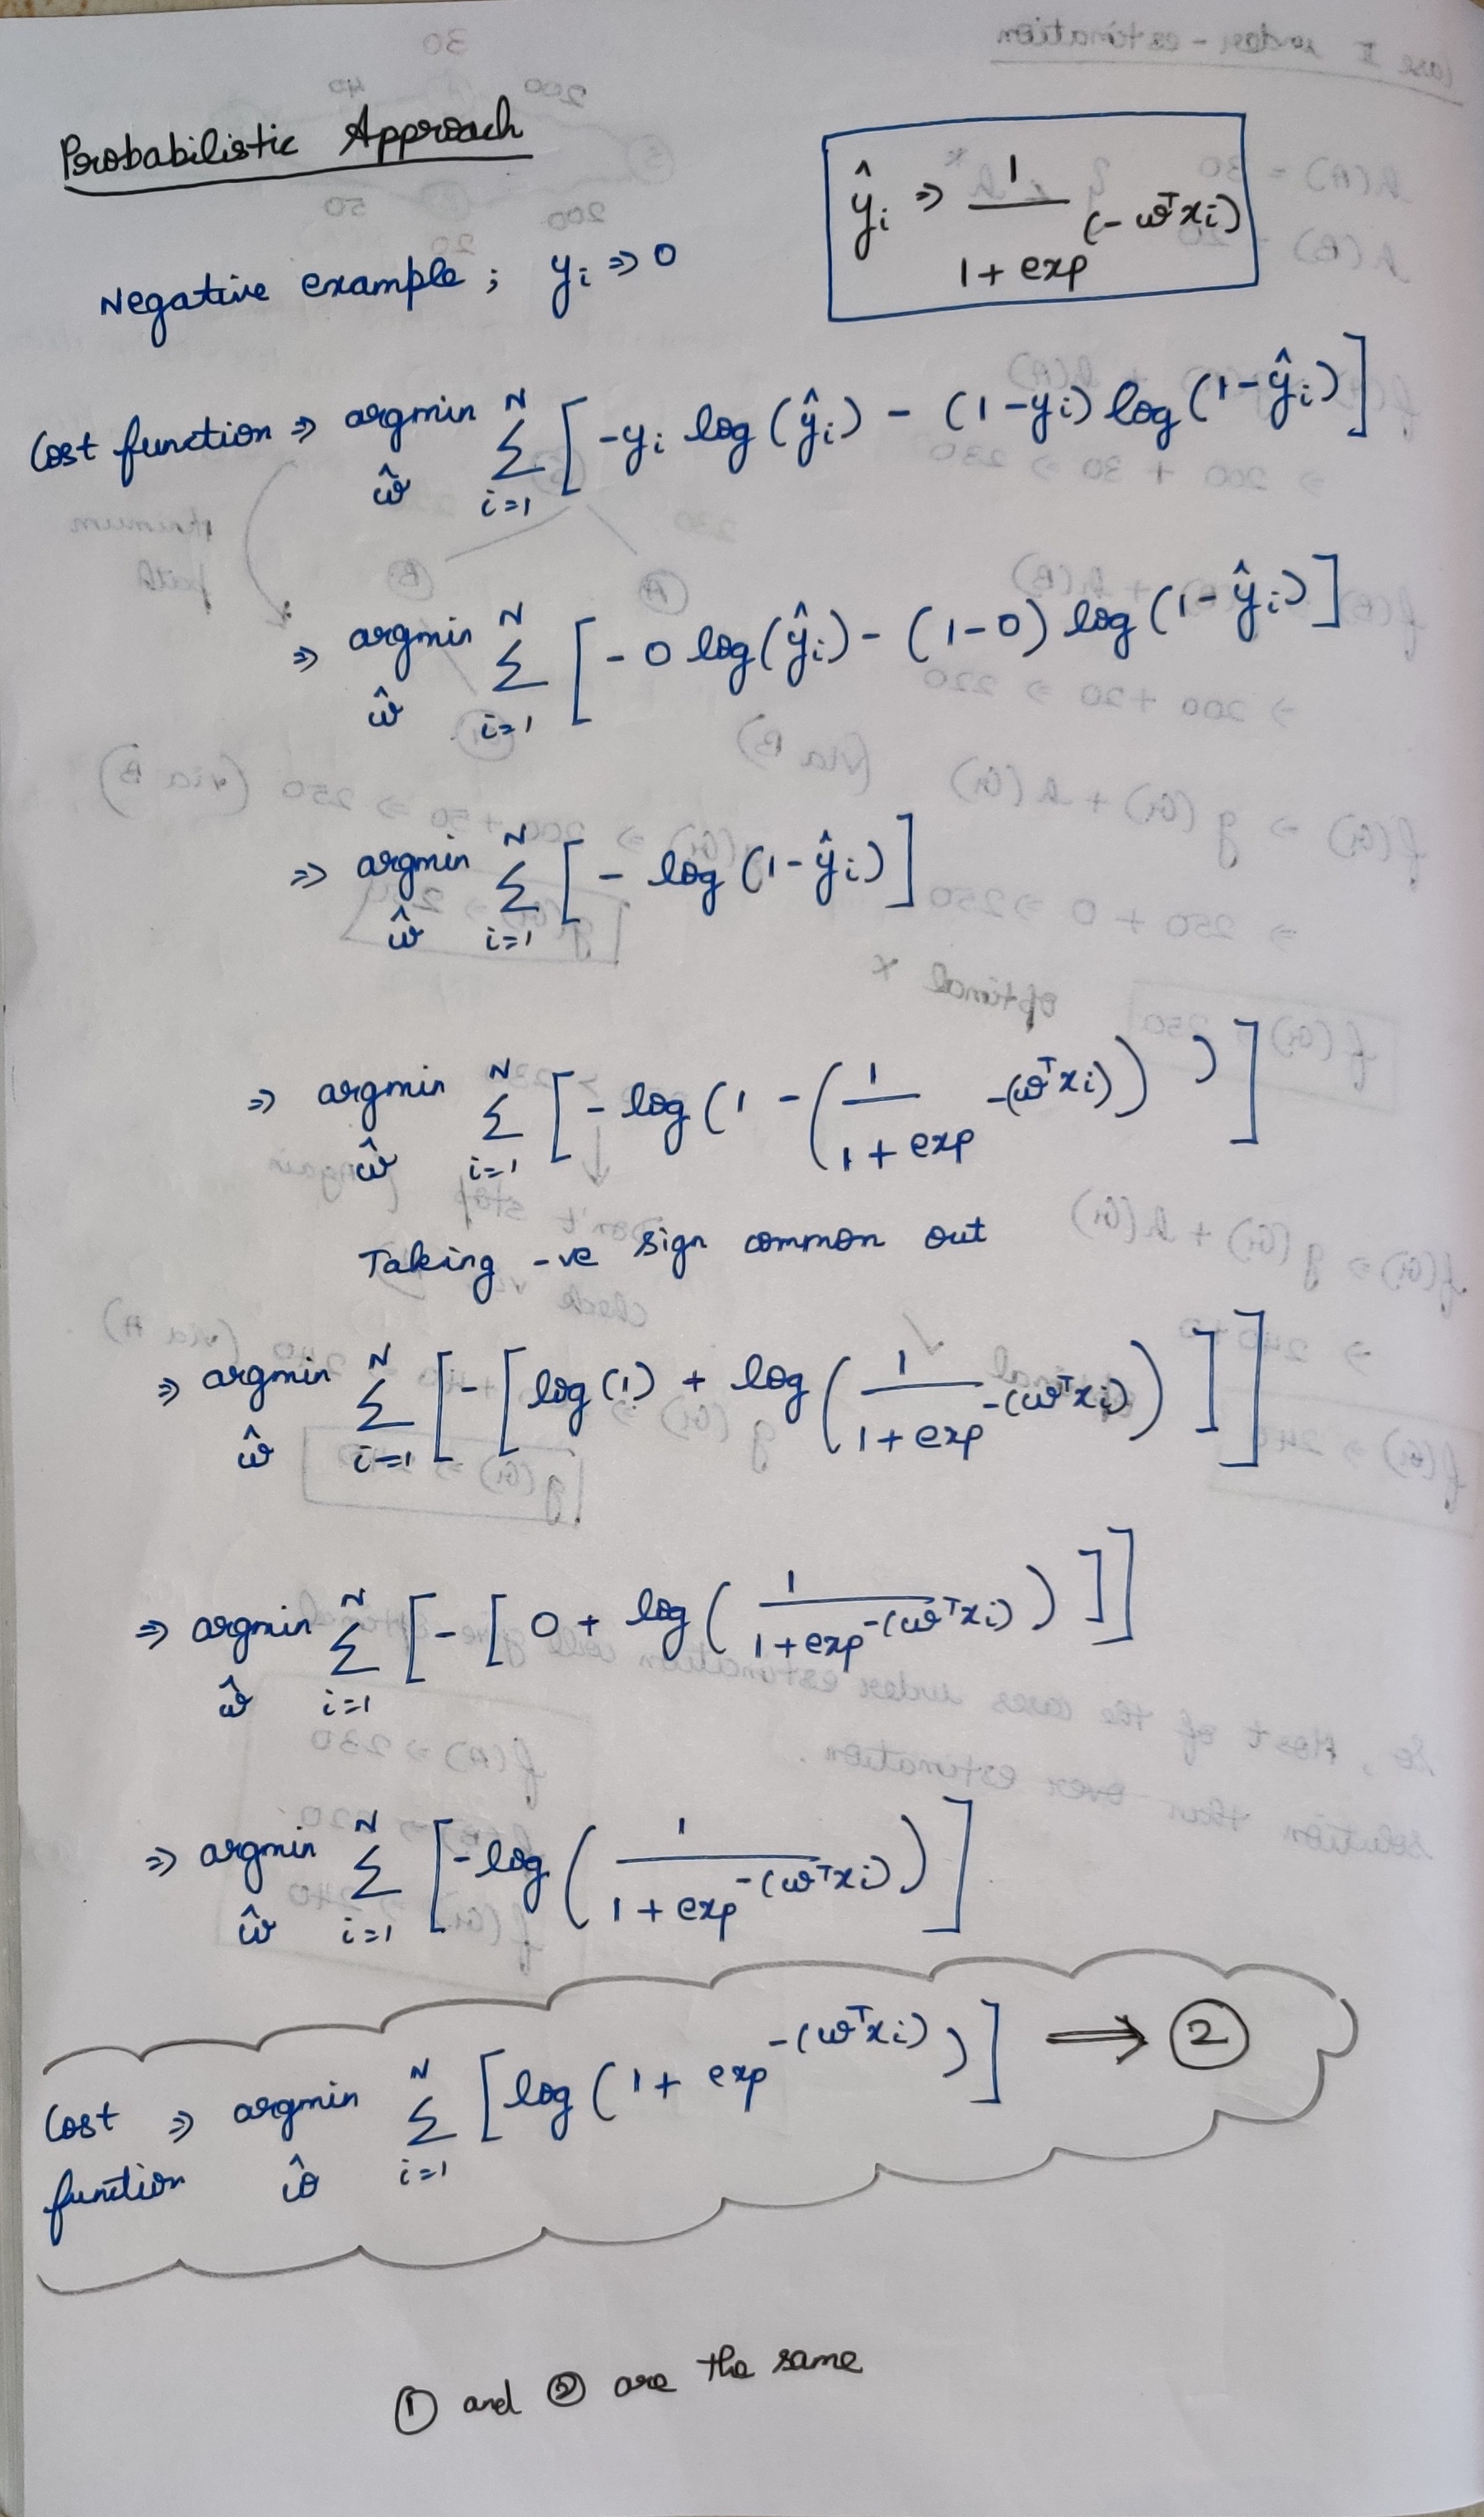 Probabilistic Approach
ŷi ⇒ 1 / (1 + exp^(-wᵀxi))
Negative example ; yi ⇒ 0
Cost function ⇒ argmin_ŵ Σ_{i=1}^{N} [ -yi log(ŷi) - (1-yi) log(1-ŷi) ]
⇒ argmin_ŵ Σ_{i=1}^{N} [ -0 log(ŷi) - (1-0) log(1-ŷi) ]
⇒ argmin_ŵ Σ_{i=1}^{N} [ - log(1-ŷi) ]
⇒ argmin_ŵ Σ_{i=1}^{N} [ - log(1 - (1 / (1 + exp^-(wᵀxi)))) ]
Taking -ve sign common out
⇒ argmin_ŵ Σ_{i=1}^{N} [ - [ log(1) + log(1 / (1 + exp^-(wᵀxi))) ] ]
⇒ argmin_ŵ Σ_{i=1}^{N} [ - [ 0 + log(1 / (1 + exp^-(wᵀxi))) ] ]
⇒ argmin_ŵ Σ_{i=1}^{N} [ -log(1 / (1 + exp^-(wᵀxi))) ]
Cost function ⇒ argmin_ŵ Σ_{i=1}^{N} [ log(1 + exp^-(wᵀxi)) ] ⟹ ②
① and ② are the same